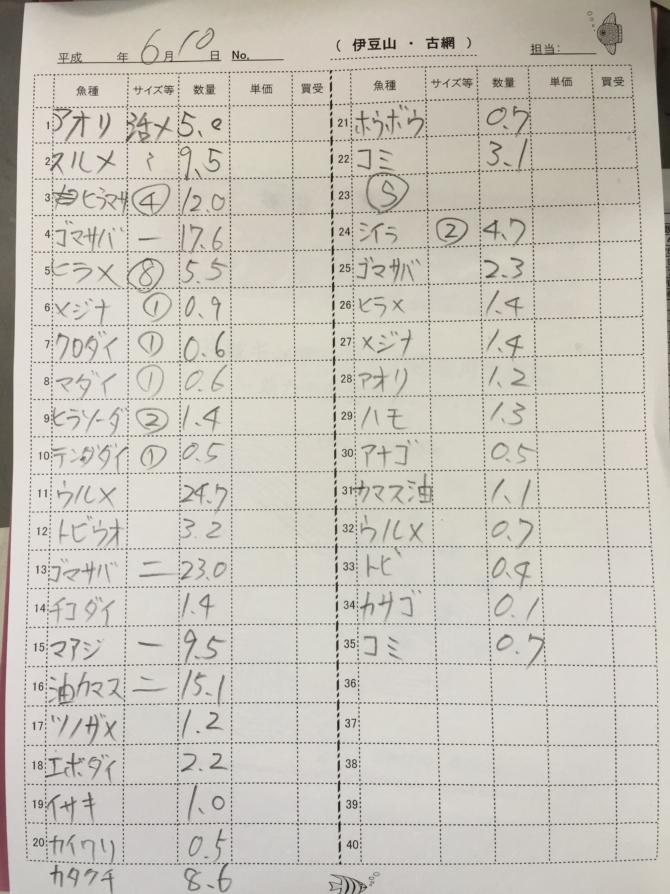 平成 年 6月10日 No. ( 伊豆山 ・ 古網 ) 担当:
魚種 サイズ等 数量 単価 買受
1 アオリ 活〆 5.0
2 スルメ 〃 9.5
3 ヒラマサ ④ 12.0
4 ゴマサバ 一 17.6
5 ヒラメ ⑧ 5.5
6 メジナ ① 0.9
7 クロダイ ① 0.6
8 マダイ ① 0.6
9 ヒラソーダ ② 1.4
10 テンダイ ① 0.5
11 ウルメ 24.7
12 トビウオ 3.2
13 ゴマサバ 二 23.0
14 チコダイ 1.4
15 マアジ 一 9.5
16 油カマス 二 15.1
17 ツノザメ 1.2
18 エボダイ 2.2
19 イサキ 1.0
20 カイワリ 0.5
カタクチ 8.6
魚種 サイズ等 数量 単価 買受
21 ホウボウ 0.7
22 コミ 3.1
23 Ⓢ
24 シイラ ② 4.7
25 ゴマサバ 2.3
26 ヒラメ 1.4
27 メジナ 1.4
28 アオリ 1.2
29 ハモ 1.3
30 アナゴ 0.5
31 カマス油 1.1
32 ウルメ 0.7
33 トビ 0.4
34 カサゴ 0.1
35 コミ 0.7
36
37
38
39
40